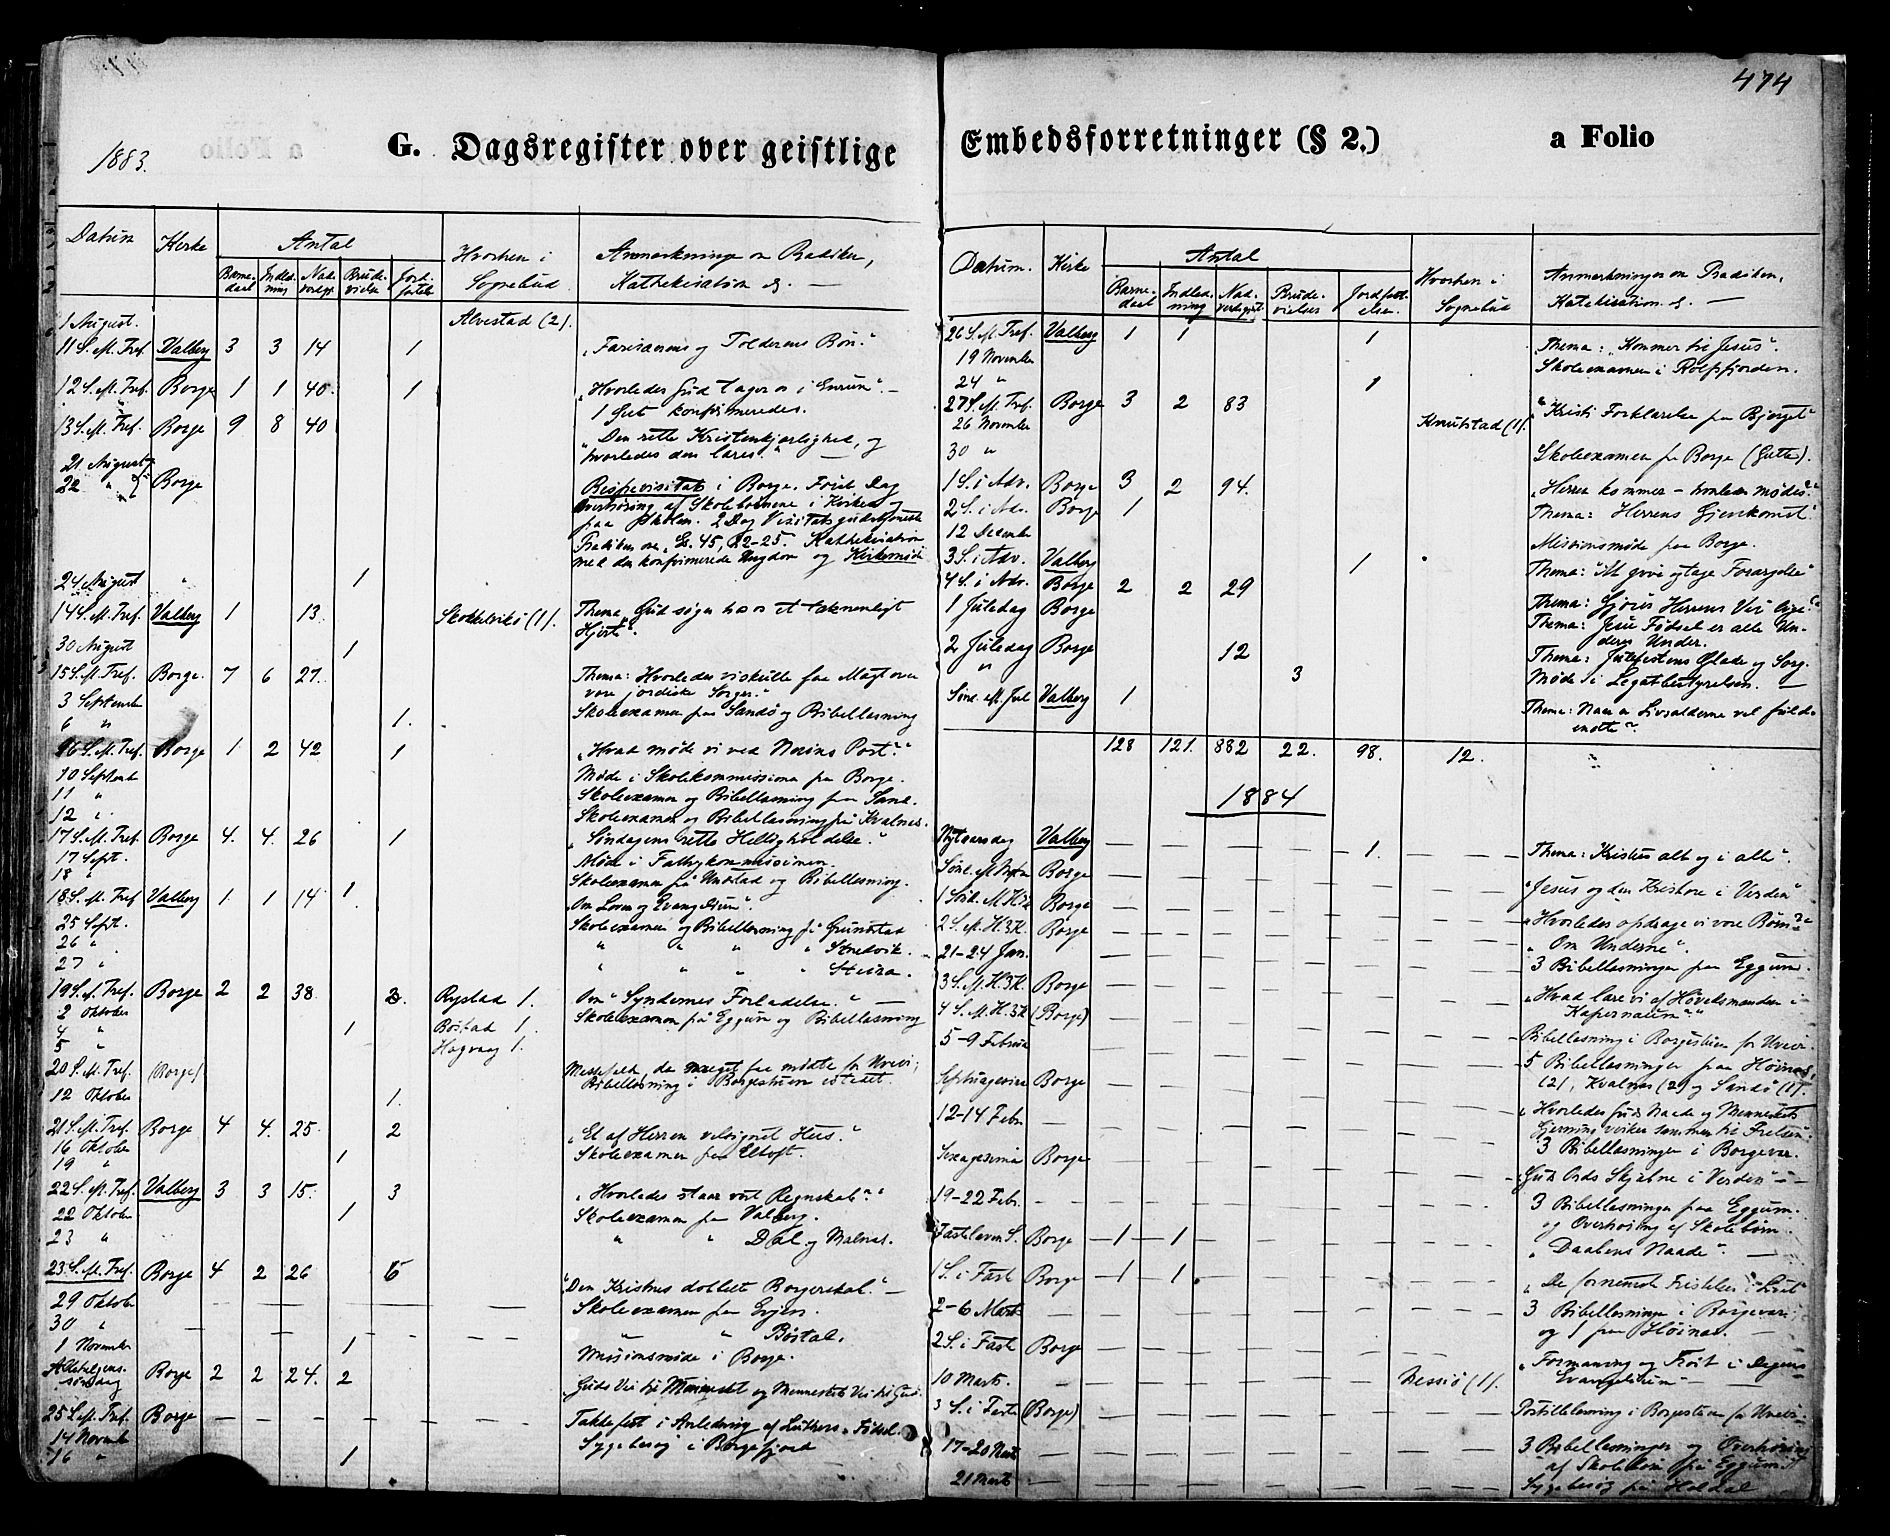 474
1883.
G. Dagsregister over geistlige Embedsforretninger (§ 2.) a Folio
Datum Kirke Antal Hvorhen i Sognebud Anmærkninger om Prædiken, Kathekisation &c. —
Barnedaab Indledning Nadverdgj. Brudevielse Jordfæstelse
1 August. Alvestad (2).
11 S. M. Tref. Valberg 3 3 14 1 „Farisæerens og Tolderens Bøn."
12 S. M. Tref. Borge 1 1 40 1 „Hvorledes Gud tager os i Enrum". —
1 Gut konfirmeredes.
13 S. M. Tref. Borge 9 8 40 „Den rette Kristenkjærlighed, og
hvorledes den læres."
21 August
22 " Borge Bispevisitats i Borge. Første Dag
Overhøring af Skolebørnene i Kirken og
paa Skolen. 2 Dag Visitatsgudstjeneste
Prædiken over Es. 45, 22-25. Kathekisation
med den konfirmerede Ungdom og Kirkemøde
24 August " 1
14 S. M. Tref. Valberg 1 13 Skottelvikø (1). Thema „Gud søger hos os et taknemligt
Hjerte".
30 August 1
15 S. M. Tref. Borge. 7 6 27. Thema: Hvorledes vi skulle faa Magt over
vore jordiske Sorger."
3 September Skoleexamen paa Sandø og Bibellæsning
6 " 1.
16 S. M. Tref. Borge 1 2 42 1 „Hvad møde vi ved Nains Port?"
10 Septembr Møde i Skolekommissionen paa Borge.
11 " Skoleexamen og Bibellæsning paa Sand.
12 " Skoleexamen og Bibellæsning på Kvalnes.
17 S. M. Tref. Borge 4. 4. 26 1 „Søndagens rette Helligholdelse."
17 Sept. Møde i Fattigkommissionen.
18 " Skoleexamen på Unstad og Bibellæsning.
18 S. M. Tref Valberg 1 1 14 1 „Om Loven og Evangelium".
25 Sept. Skoleexamen og Bibellæsning på Grunstad
26 " " " " " Stredvik.
27 " " " " " Steira.
19 S. M. Tref. Borge 2 2 38 2. Rystad 1. Om „Syndernes Forladelse." —
2 Oktober Bøstad 1. Skoleexamen på Eggum og Bibellæsning
4 " 1 Hagvaag 1.
5 "
20 S. M. Tref. (Borge) Messefald, da meget faa mødte for Uveir;
Bibellæsning i Borgestuen istedet.
12 Oktober 1.
21 S. M. Tref. Borge 4 4. 25 2 „Et af Herren velsignet Hus."
16 Oktober Skoleexamen paa Eltoft.
19 " 1
22 S. M. Tref. Valberg 3 3 15. 3 „Hvorledes staar vort Regnskab?"
22 Oktober 1 Skoleexamen paa Valberg.
23 " " " Dal og Malnæs.
23. S. M. Tref. Borge 4 2 26 5 „Den Kristnes dobbelt Borgerskab." —
29 Oktober Skoleexamen paa Evjen.
30 " " " Bøstad.
1 November 1 Missionsmøde i Borge.
Allehelgens-
søndag Borge 2 2 24. 2 Guds Vei til Mennesket og Menneskets Vei til Gud.
25 S. M. Tref. Borge Takkefest i Anledning af Luthers Fødsel.
14 Novembr Sygebesøg i Borgefjord
16 " 1
Datum. Kirke Antal Hvorhen i Sognebud Anmærkninger om Prædiken, Katekisation &. —
Barnedaab Indledning Nadverdgjst. Brudevielser Jordfæstelser
26 S. M. Tref. Valberg 1 1 1 Thema: „Kommer til Jesus".
19 November Skoleexamen i Rolfsfjorden.
24 " 1
27 S. M. Tref. Borge 3 2 83 „Kristi Forklarelse paa Bjerget"
26 November Knutstad (1).
30 " Skoleexamen paa Borge (Gutter).
1 S. i Adv. Borge 3 2 94. „Herren kommer — hvorledes mødes?"
2 S. i Adv. Borge 1 Thema: Herrens Gjenkomst.
12 December Missionsmøde paa Borge.
3 S. i Adv. Valberg 1 Thema: "At give og tage Forargelse"
4 S. i Adv. Borge 2 2 29 Thema: Gjører Herrens Vei lige!"
1 Juledag Borge Thema: Jesu Fødsel er alle Un-
ders Under.
2 Juledag Borge 12 Thema: Julefestens Glæde og Sorg.
" 3 Møde i Legatbestyrelsen. —
Sønd. M. Jul Valberg 1 Thema: Naar er Livsalderne vel fuld-
endte?
128 121. 882 22. 98. 12.
1884
Nytaarsdag Valberg 1. Thema: Kristus alt og i alle".
Sønd. M. Nytaar Borge „Jesus og den Kristne i Verden"
1 Sønd. M. H3K Borge „Hvorledes opdrage vi vore Børn?"
2 S. M. H.3K. Borge „Om Underne".
21-24 Jan. 3 Bibellæsninger paa Eggum.
3 S. M. H.3K. Borge „Hvad lære vi af Høvedsmanden i
Kapernaum?"
4 S. M. H.3K (Borge) Bibellæsning i Borgestuen for Uveir.
5-9 Februar 5 Bibellæsninger paa Høines
(2), Kvalnes (2) og Sandø (1).
Septuagesima Borge „Hvorledes Guds Naade og Menneskets
Gjerning virker sammen til Frelsen".
12-14 Febr. 3 Bibellæsninger i Borgevær.
Sexagesima Borge „Guds Ords Skjæbne i Verden" —
19-22 Febr. 3 Bibellæsninger paa Eggum.
og Overhøring af Skolebørn.
Fastelavns S. Borge 1 1 „Daabens Naade". —
1 S. i Fast Borge 1 1 „De fornemste Fristelser i Livet
2-6 Marts 3 Bibellæsninger i Borgevær;
og 1 paa Høines. —
2 S. i Fast Borge „Formaning og Trøst i Dagens
Evangelium" —
10 Marts. Ressiø (1).
3 S. i Faste (Borge) Postillelæsning i Borgestuen for Uveir.
17-20 Marts 3 Bibellæsninger og Overhøring
af Skolebørn på Eggum.
21 Marts Sygebesøg på Haldal